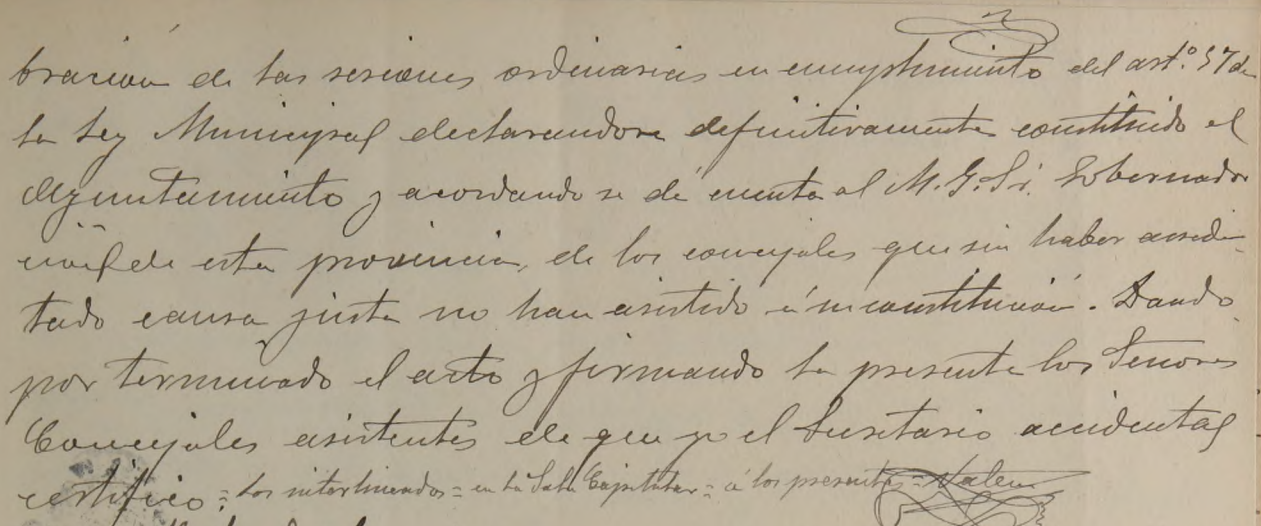 bracion de las sesiones ordinarias en cumplimiento del artº. 57 de
la Ley Municipal declarandose definitivamente constituido el
Ayuntamiento y acordando se dé cuenta al M. Y. Sr. Gobernador
civil de esta provincia, de los concejales que sin haber acredi-
tado causa justa no han asistido á su constitución. Dando
por terminado el acto y firmando la presente los Señores
Concejales asistentes de que yo el Secretario accidental
certifico = Los interlineados = en la Sala Capitular = á los presentes = Valen